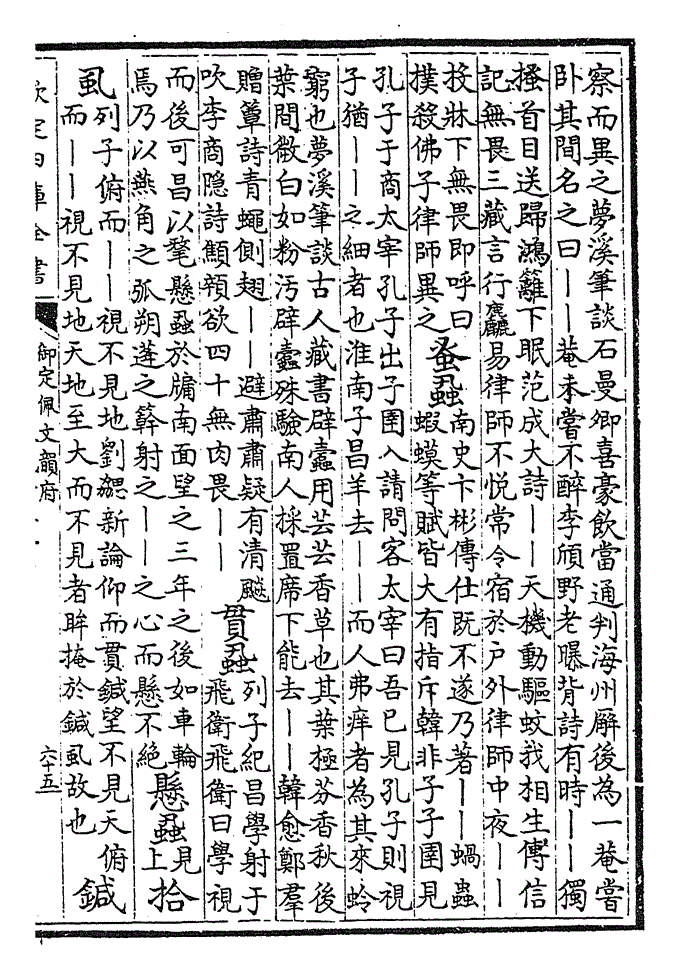 察而異之夢溪筆談石曼卿喜豪飲當通判海州廨後為一菴嘗
卧其間名之曰――菴未嘗不醉李頎野老曝背詩有時――獨
搔首目送歸鴻籬下眠范成大詩――天機動驅蚊我相生傳信
記無畏三藏言行麤易律師不悅常令宿於戶外律師中夜――
投牀下無畏即呼曰
撲殺佛子律師異之
蚤蝨
南史卞彬傳仕既不遂乃著――蝸蟲
蝦蟆等賦皆大有指斥韓非子子圉見
孔子于商太宰孔子出子圉入請問客太宰曰吾已見孔子則視
子猶――之細者也淮南子昌羊去――而人弗庠者為其來蛉
窮也夢溪筆談古人藏書辟蠹用芸芸香草也其葉極芬香秋後
葉間微白如粉汚辟蠹殊驗南人採置席下能去――韓愈鄭羣
贈簟詩青蠅側翅――避肅肅疑有清飈
吹李商隐詩顦顇欲四十無肉畏――
貫蝨
列子紀昌學射于
飛衛飛衛曰學視
而後可昌以氂懸蝨於牖南面望之三年之後如車輪
焉乃以燕角之弧朔蓬之簳射之――之心而懸不絕
懸蝨
見上
拾
虱
列子俯而――視不見地劉勰新論仰而貫鍼望不見天俯
而――視不見地天地至大而不見者眸掩於鍼虱故也
鍼
欽定四庫全書
御定佩文韻府
六十五